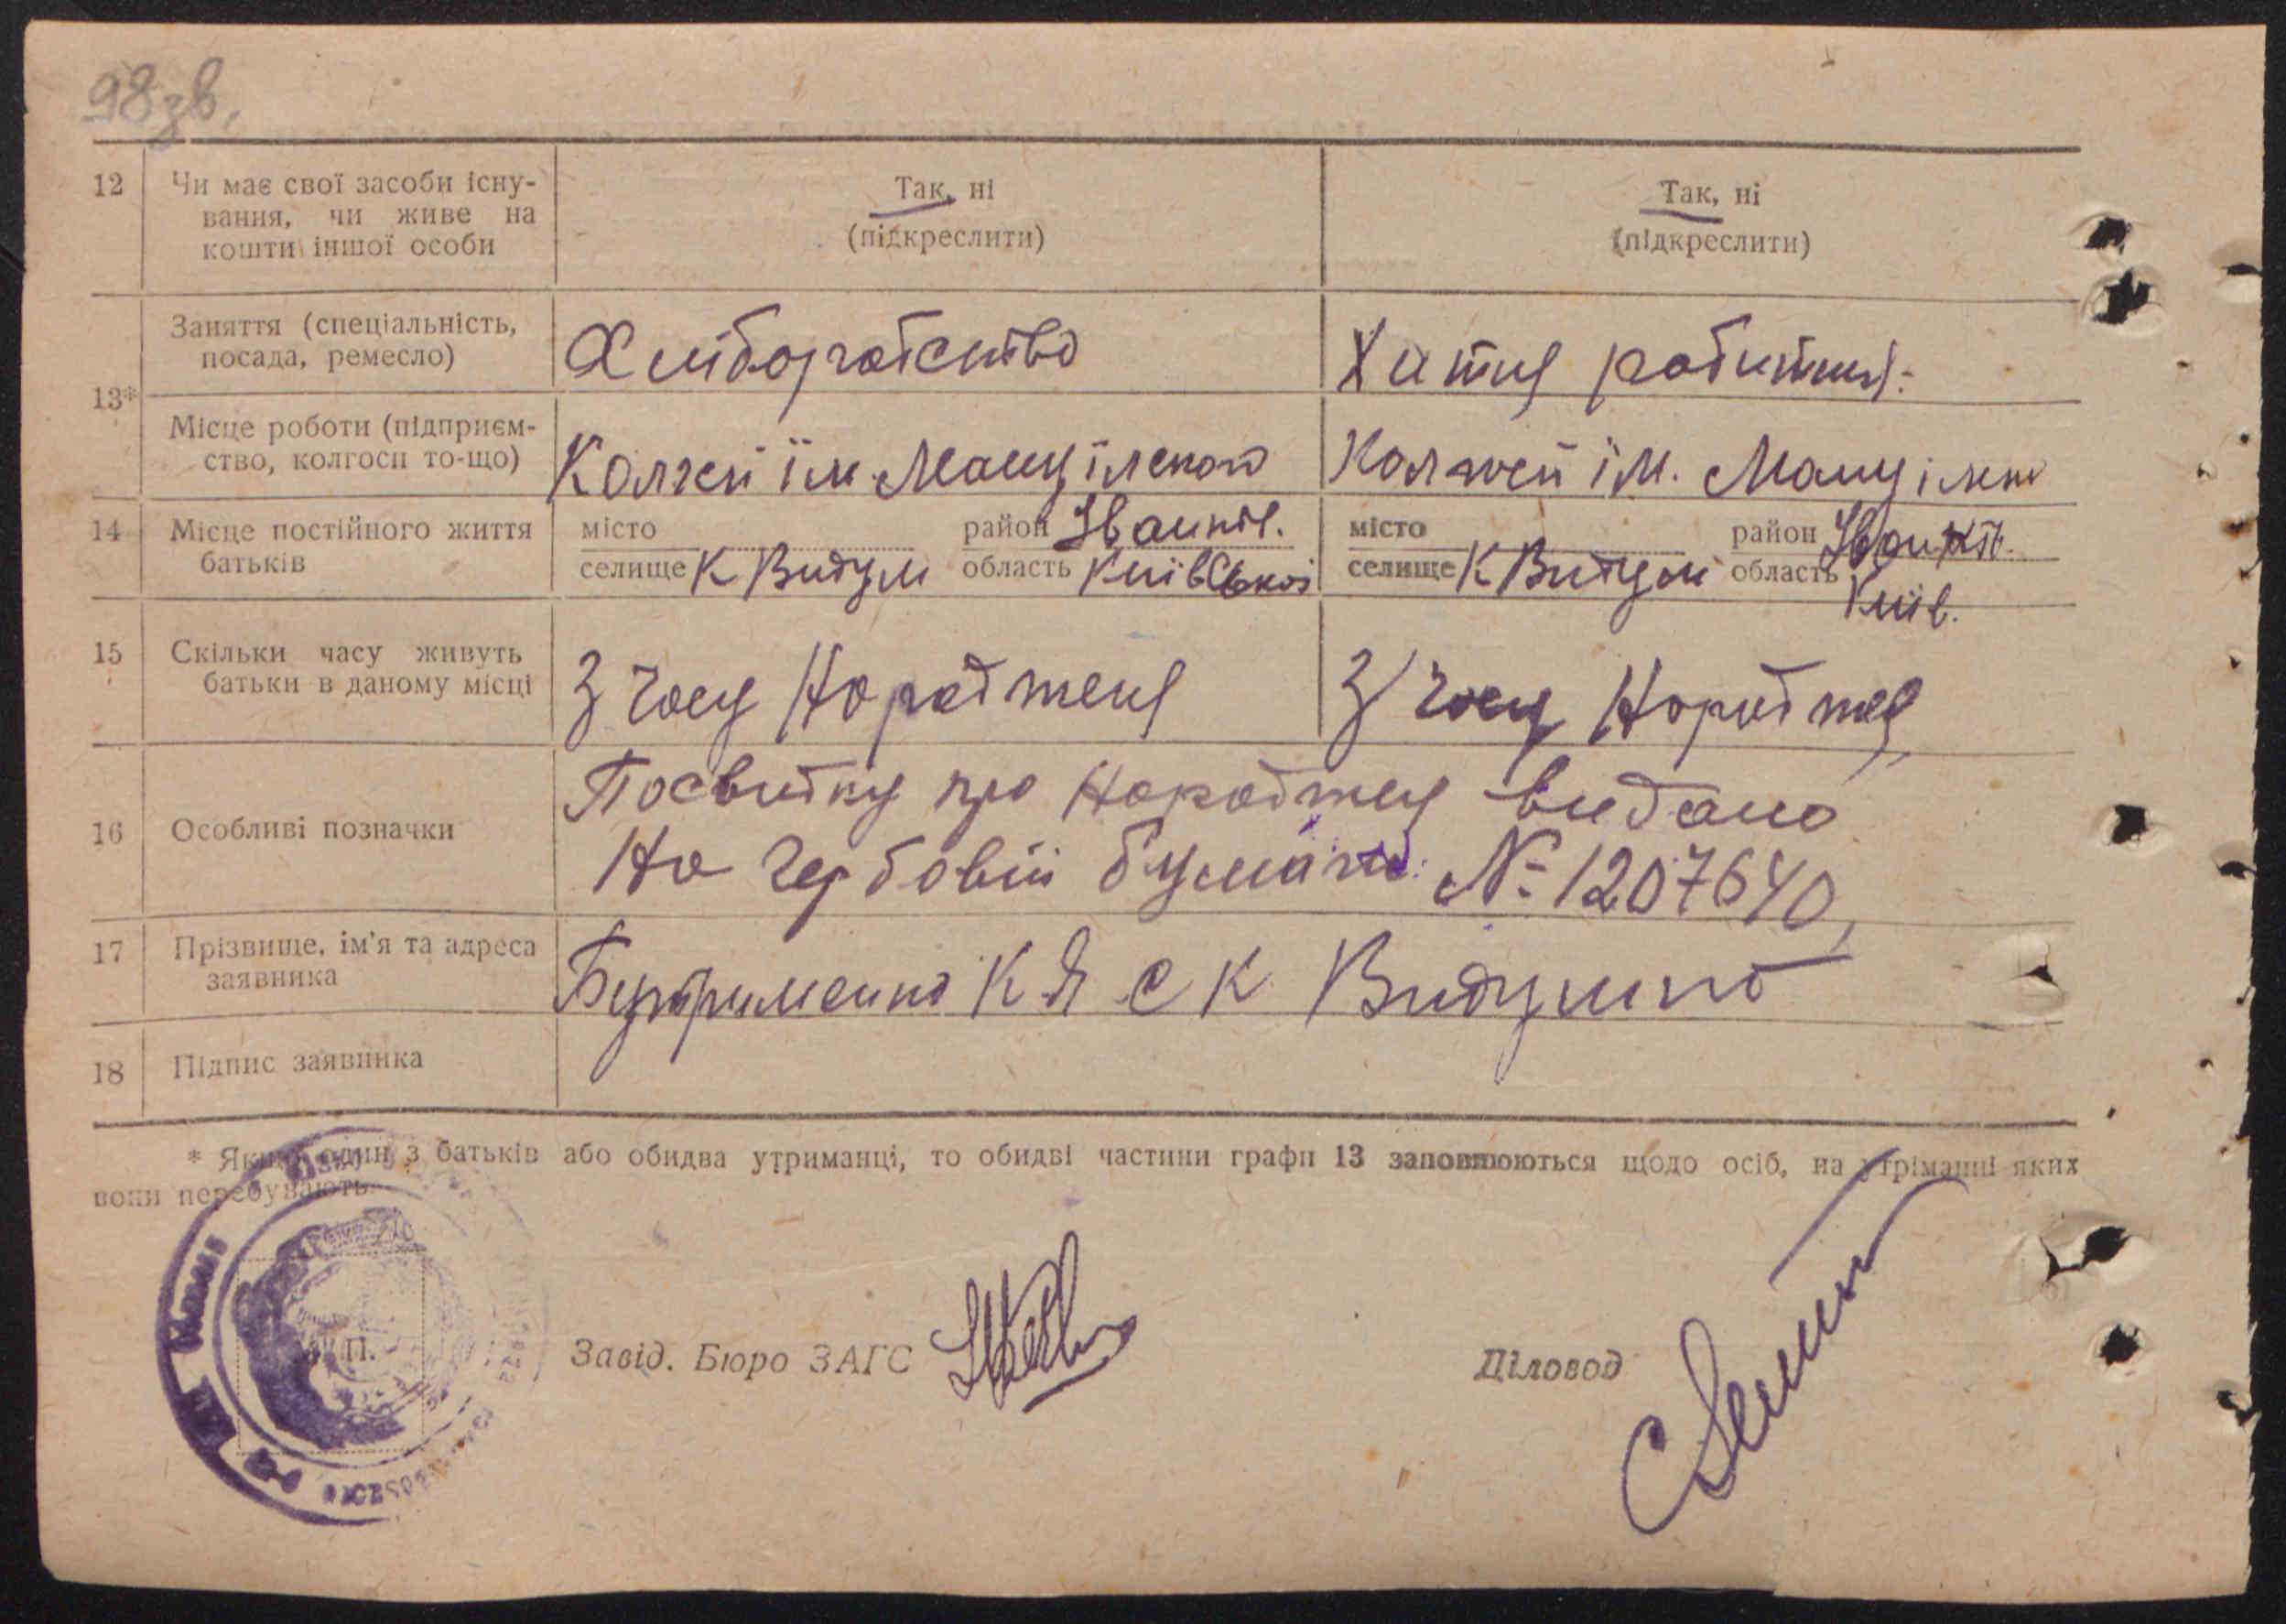 98зв.
12 Чи має свої засоби існу-
вання, чи живе на
кошти іншої особи
Так, ні
(підкреслити)
Так, ні
(підкреслити)
13*
Заняття (спеціальність,
посада, ремесло)
Хліборобство
Хатня робітниця
Місце роботи (підприєм-
ство, колгосп то-що)
Колхоз їм
Колхоз їм.
14 Місце постійного життя
батьків
місто район Іванків.
селище К Видум область Київської
місто район Іванків.
селище К Видум область Київ.
15 Скільки часу живуть
батьки в даному місці
З часу Народженя
З часу Народженя
16 Особливі позначки
Посвідку про Народженя видано
На Гербовій бумазі № 1207640,
17 Прізвище, ім'я та адреса
заявника
Бутрименко К Я с К Видумка
18 Підпис заявника
* Якщо один з батьків або обидва утриманці, то обидві частини графи 13 заповнюються щодо осіб, на утриманні яких
вони перебувають.
М. П.
Завід. Бюро ЗАГС
Діловод